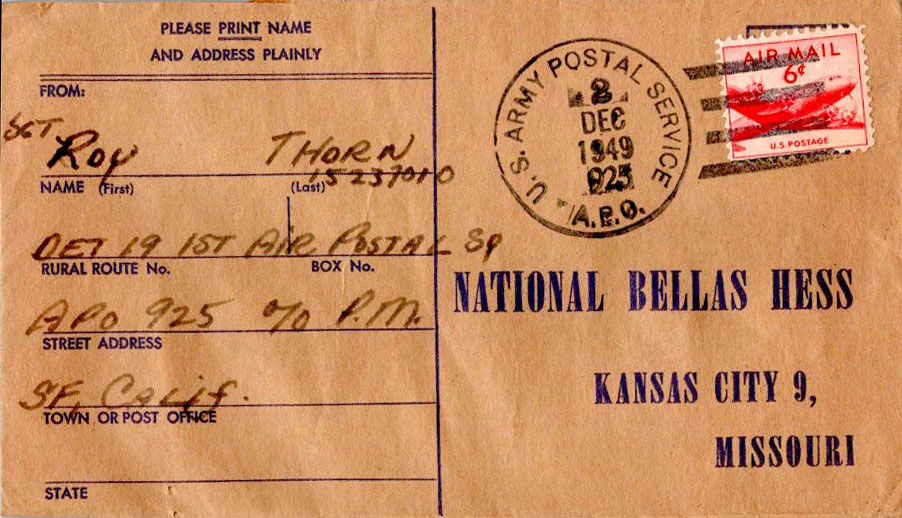 PLEASE PRINT NAME
AND ADDRESS PLAINLY
FROM:
SGT
Roy THORN
15237010
NAME (First) (Last)
DET 19 1ST AIR POSTAL Sq
RURAL ROUTE No. BOX No.
APO 925 c/o P.M.
STREET ADDRESS
SF, Calif.
TOWN OR POST OFFICE
STATE
U.S. ARMY POSTAL SERVICE
2
DEC
1949
925
A.P.O.
AIR MAIL
6¢
U.S. POSTAGE
NATIONAL BELLAS HESS
KANSAS CITY 9,
MISSOURI